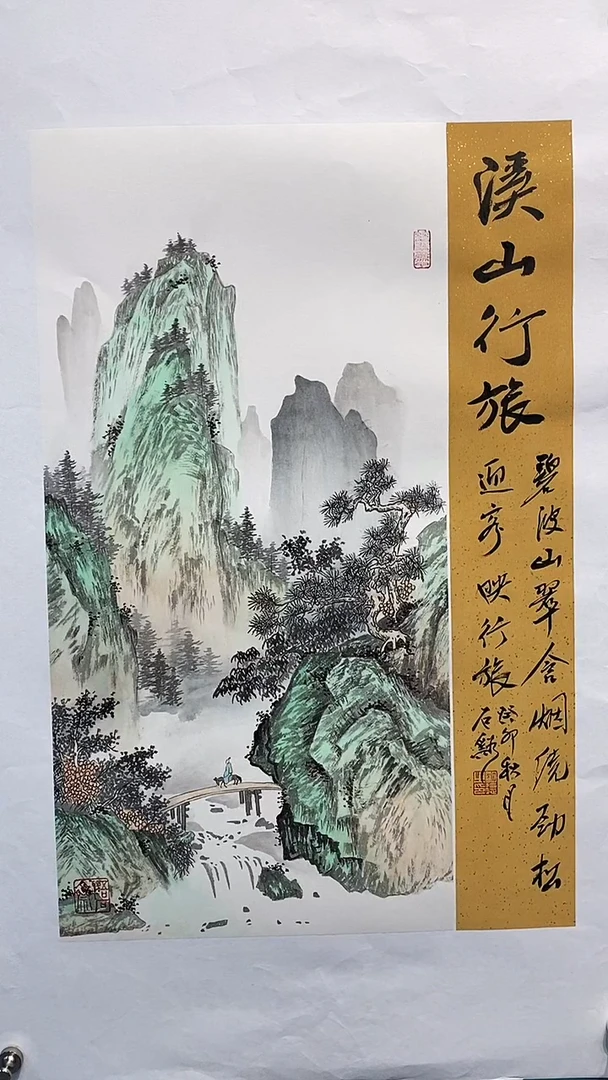 溪山行旅
碧波山翠含烟绕劲松
迎客映行旅
癸卯秋月
石